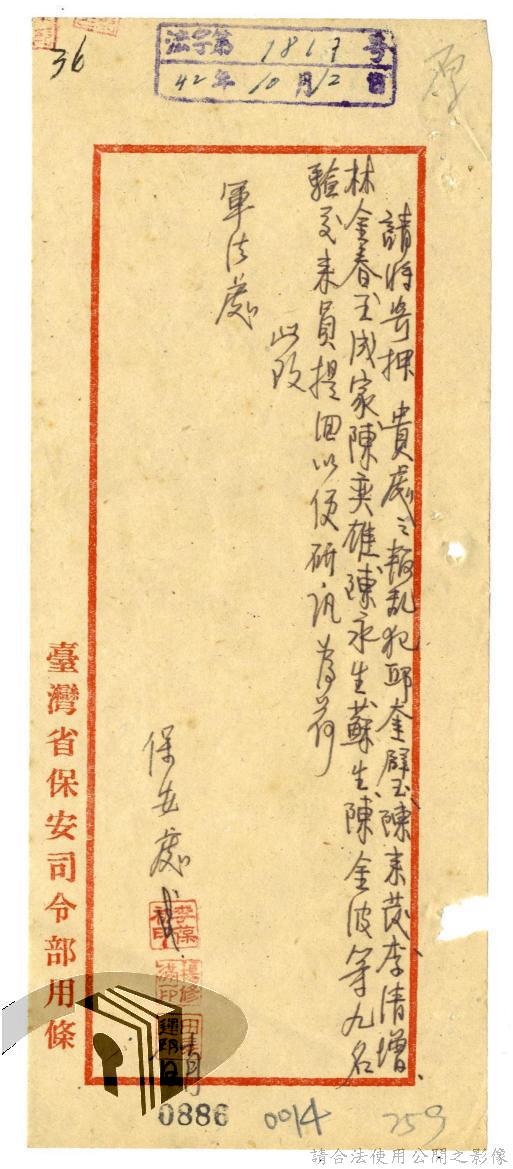 36
法字第1813号
42年10月12日
請將寄押 貴處之叛亂犯邱奎璧陳來茂李清增
林金春王成家陳奕雄陳永生蘇生陳金波等九名
驗交來員提回以便研訊為荷
此致
軍法處
保安處
臺灣省保安司令部用條
0886
0014
259
請合法使用公開之影像